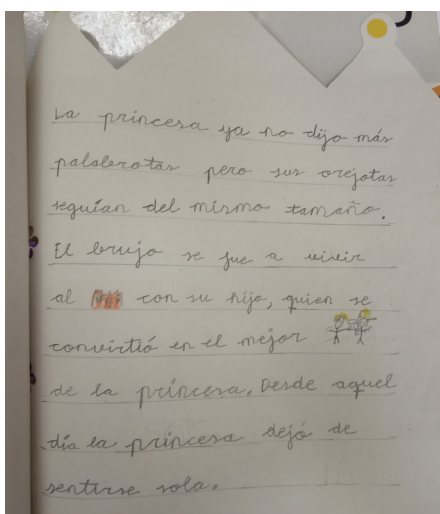 La princesa ya no dijo más
palaberotas pero sus orejotas
seguían del mismo tamaño.
El brujo se fue a vivir
al con su hijo, quien se
convirtió en el mejor
de la princesa. Desde aquel
día la princesa dejó de
sentirse sola.